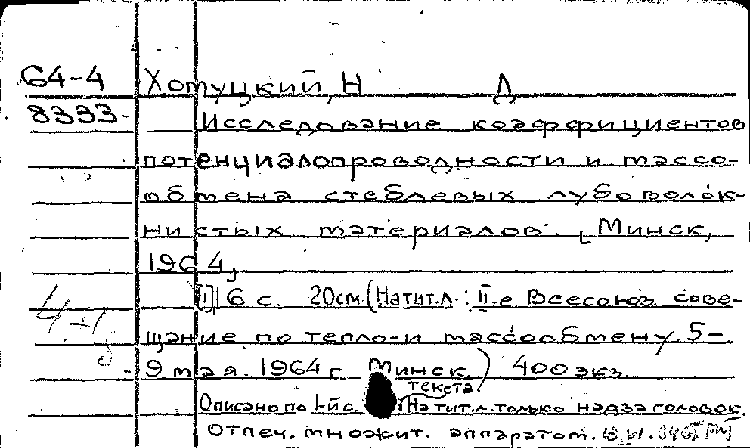 64-4 Хотуцкий, Н Д
8333. Исследование коэффициентов
потенциалопроводности и массо-
обмена стеблевых лубоволок-
нистых материалов. [Минск,
1964,
6 с. 20см. (На тит.л.: II-е Всесоюз. сове-
щание по тепло- и массообмену. 5-
9 мая. 1964 г. Минск) 400 экз.
текста
Описано по 1-й с. На тит. л. только надзаголовок.
Отпеч. множит. аппаратом.